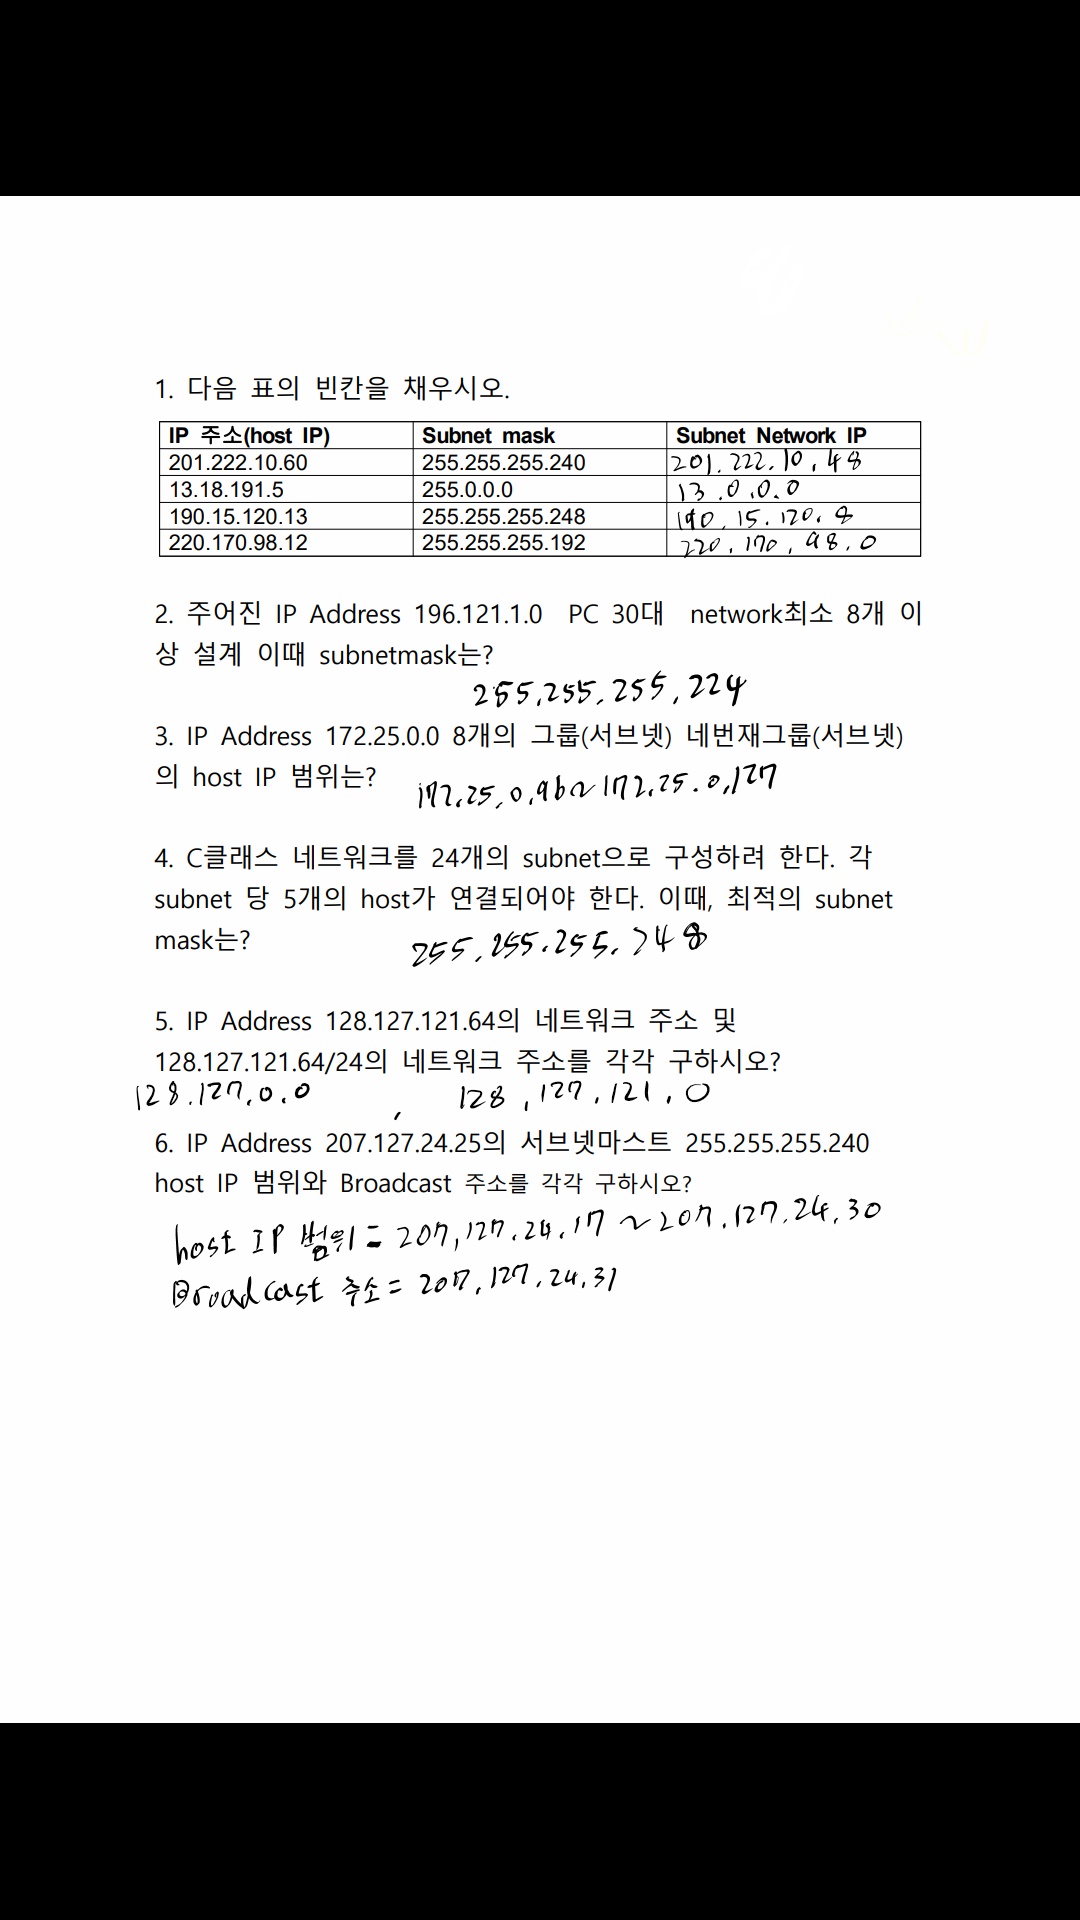 1. 다음 표의 빈칸을 채우시오.
IP 주소(host IP) Subnet mask Subnet Network IP
201.222.10.60 255.255.255.240 201.222.10.48
13.18.191.5 255.0.0.0 13.0.0.0
190.15.120.13 255.255.255.248 190.15.120.8
220.170.98.12 255.255.255.192 220.170.98.0
2. 주어진 IP Address 196.121.1.0 PC 30대 network최소 8개 이
상 설계 이때 subnetmask는?
255.255.255.224
3. IP Address 172.25.0.0 8개의 그룹(서브넷) 네번재그룹(서브넷)
의 host IP 범위는? 172.25.0.96~172.25.0.127
4. C클래스 네트워크를 24개의 subnet으로 구성하려 한다. 각
subnet 당 5개의 host가 연결되어야 한다. 이때, 최적의 subnet
mask는? 255.255.255.248
5. IP Address 128.127.121.64의 네트워크 주소 및
128.127.121.64/24의 네트워크 주소를 각각 구하시오?
128.127.0.0 , 128.127.121.0
6. IP Address 207.127.24.25의 서브넷마스트 255.255.255.240
host IP 범위와 Broadcast 주소를 각각 구하시오?
host IP 범위 = 207.127.24.17 ~ 207.127.24.30
Broadcast 주소 = 207.127.24.31